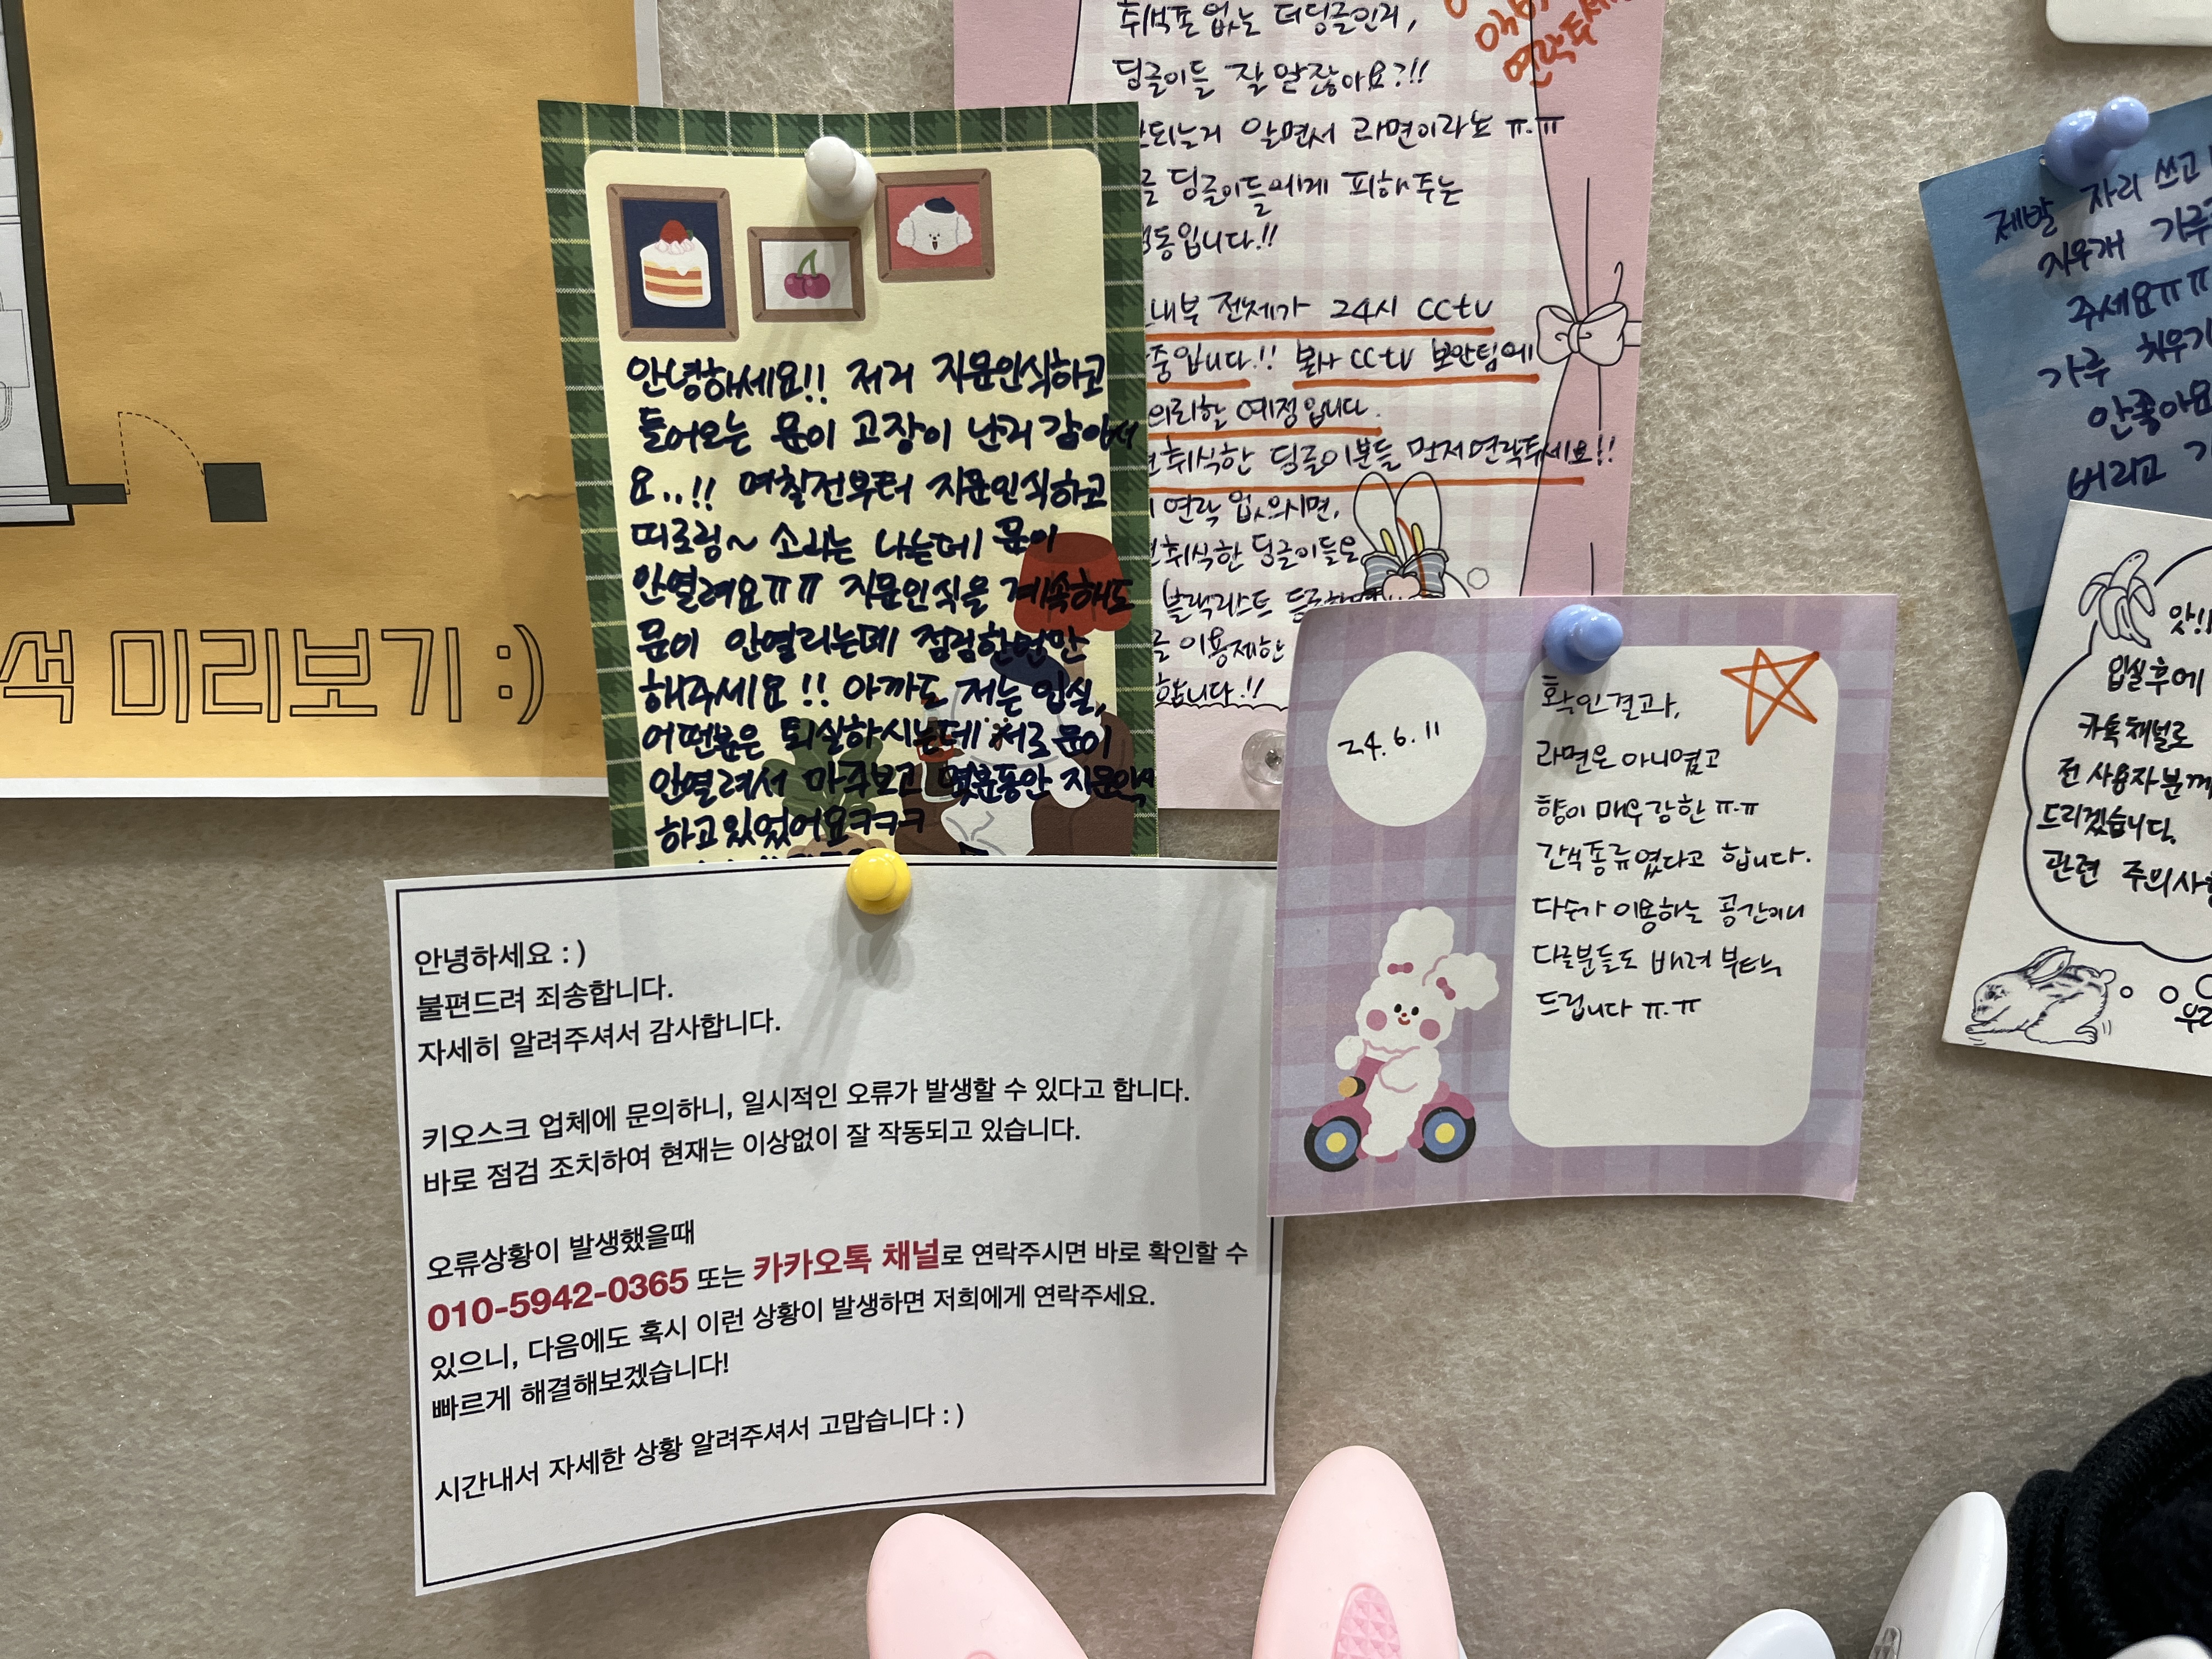 색 미리보기 :)
안녕하세요!! 저기 지문인식하고
들어오는 문이 고장이 난거 같아서
요..!! 며칠전부터 지문인식하고
띠로링~ 소리는 나는데 문이
안열려요ㅠㅠ 지문인식을 계속해도
문이 안열리는데 점검한번만
해주세요!! 아까도 저는 입실,
어떤분은 퇴실하시는데 서로 문이
안열려서 마주보고 몇분동안 지문인식
하고있었어요ㅋㅋㅋ
취식존없는 더딩글인거,
딩글이들 잘 알잖아요?!!
안되는거 알면서 라면이라뇨 ㅠ.ㅠ
딩글이들에게 피해주는
행동입니다.!!
내부 전체가 24시 cctv
중입니다.!! 본사 cctv 보안팀에
의뢰할 예정입니다.
취식한 딩글이분들 먼저연락주세요!!
연락 없으시면,
취식한 딩글이들은
블랙리스트
이용제한
합니다.!!
연락주세요
24.6.11
확인결과,
라면은 아니였고
향이 매우강한 ㅠ.ㅠ
간식종류였다고 합니다.
다수가 이용하는 공간이니
다른분들도 배려 부탁
드립니다 ㅠ.ㅠ
안녕하세요 : )
불편드려 죄송합니다.
자세히 알려주셔서 감사합니다.
키오스크 업체에 문의하니, 일시적인 오류가 발생할 수 있다고 합니다.
바로 점검 조치하여 현재는 이상없이 잘 작동되고 있습니다.
오류상황이 발생했을때
010-5942-0365 또는 카카오톡 채널로 연락주시면 바로 확인할 수
있으니, 다음에도 혹시 이런 상황이 발생하면 저희에게 연락주세요.
빠르게 해결해보겠습니다!
시간내서 자세한 상황 알려주셔서 고맙습니다 : )
제발 자리 쓰고
지우개 가루
주세요ㅠㅠ
가루 치우기
안좋아요
버리고
앗!!
입실후에
카톡채널로
전 사용자분께
드리겠습니다.
관련 주의사항